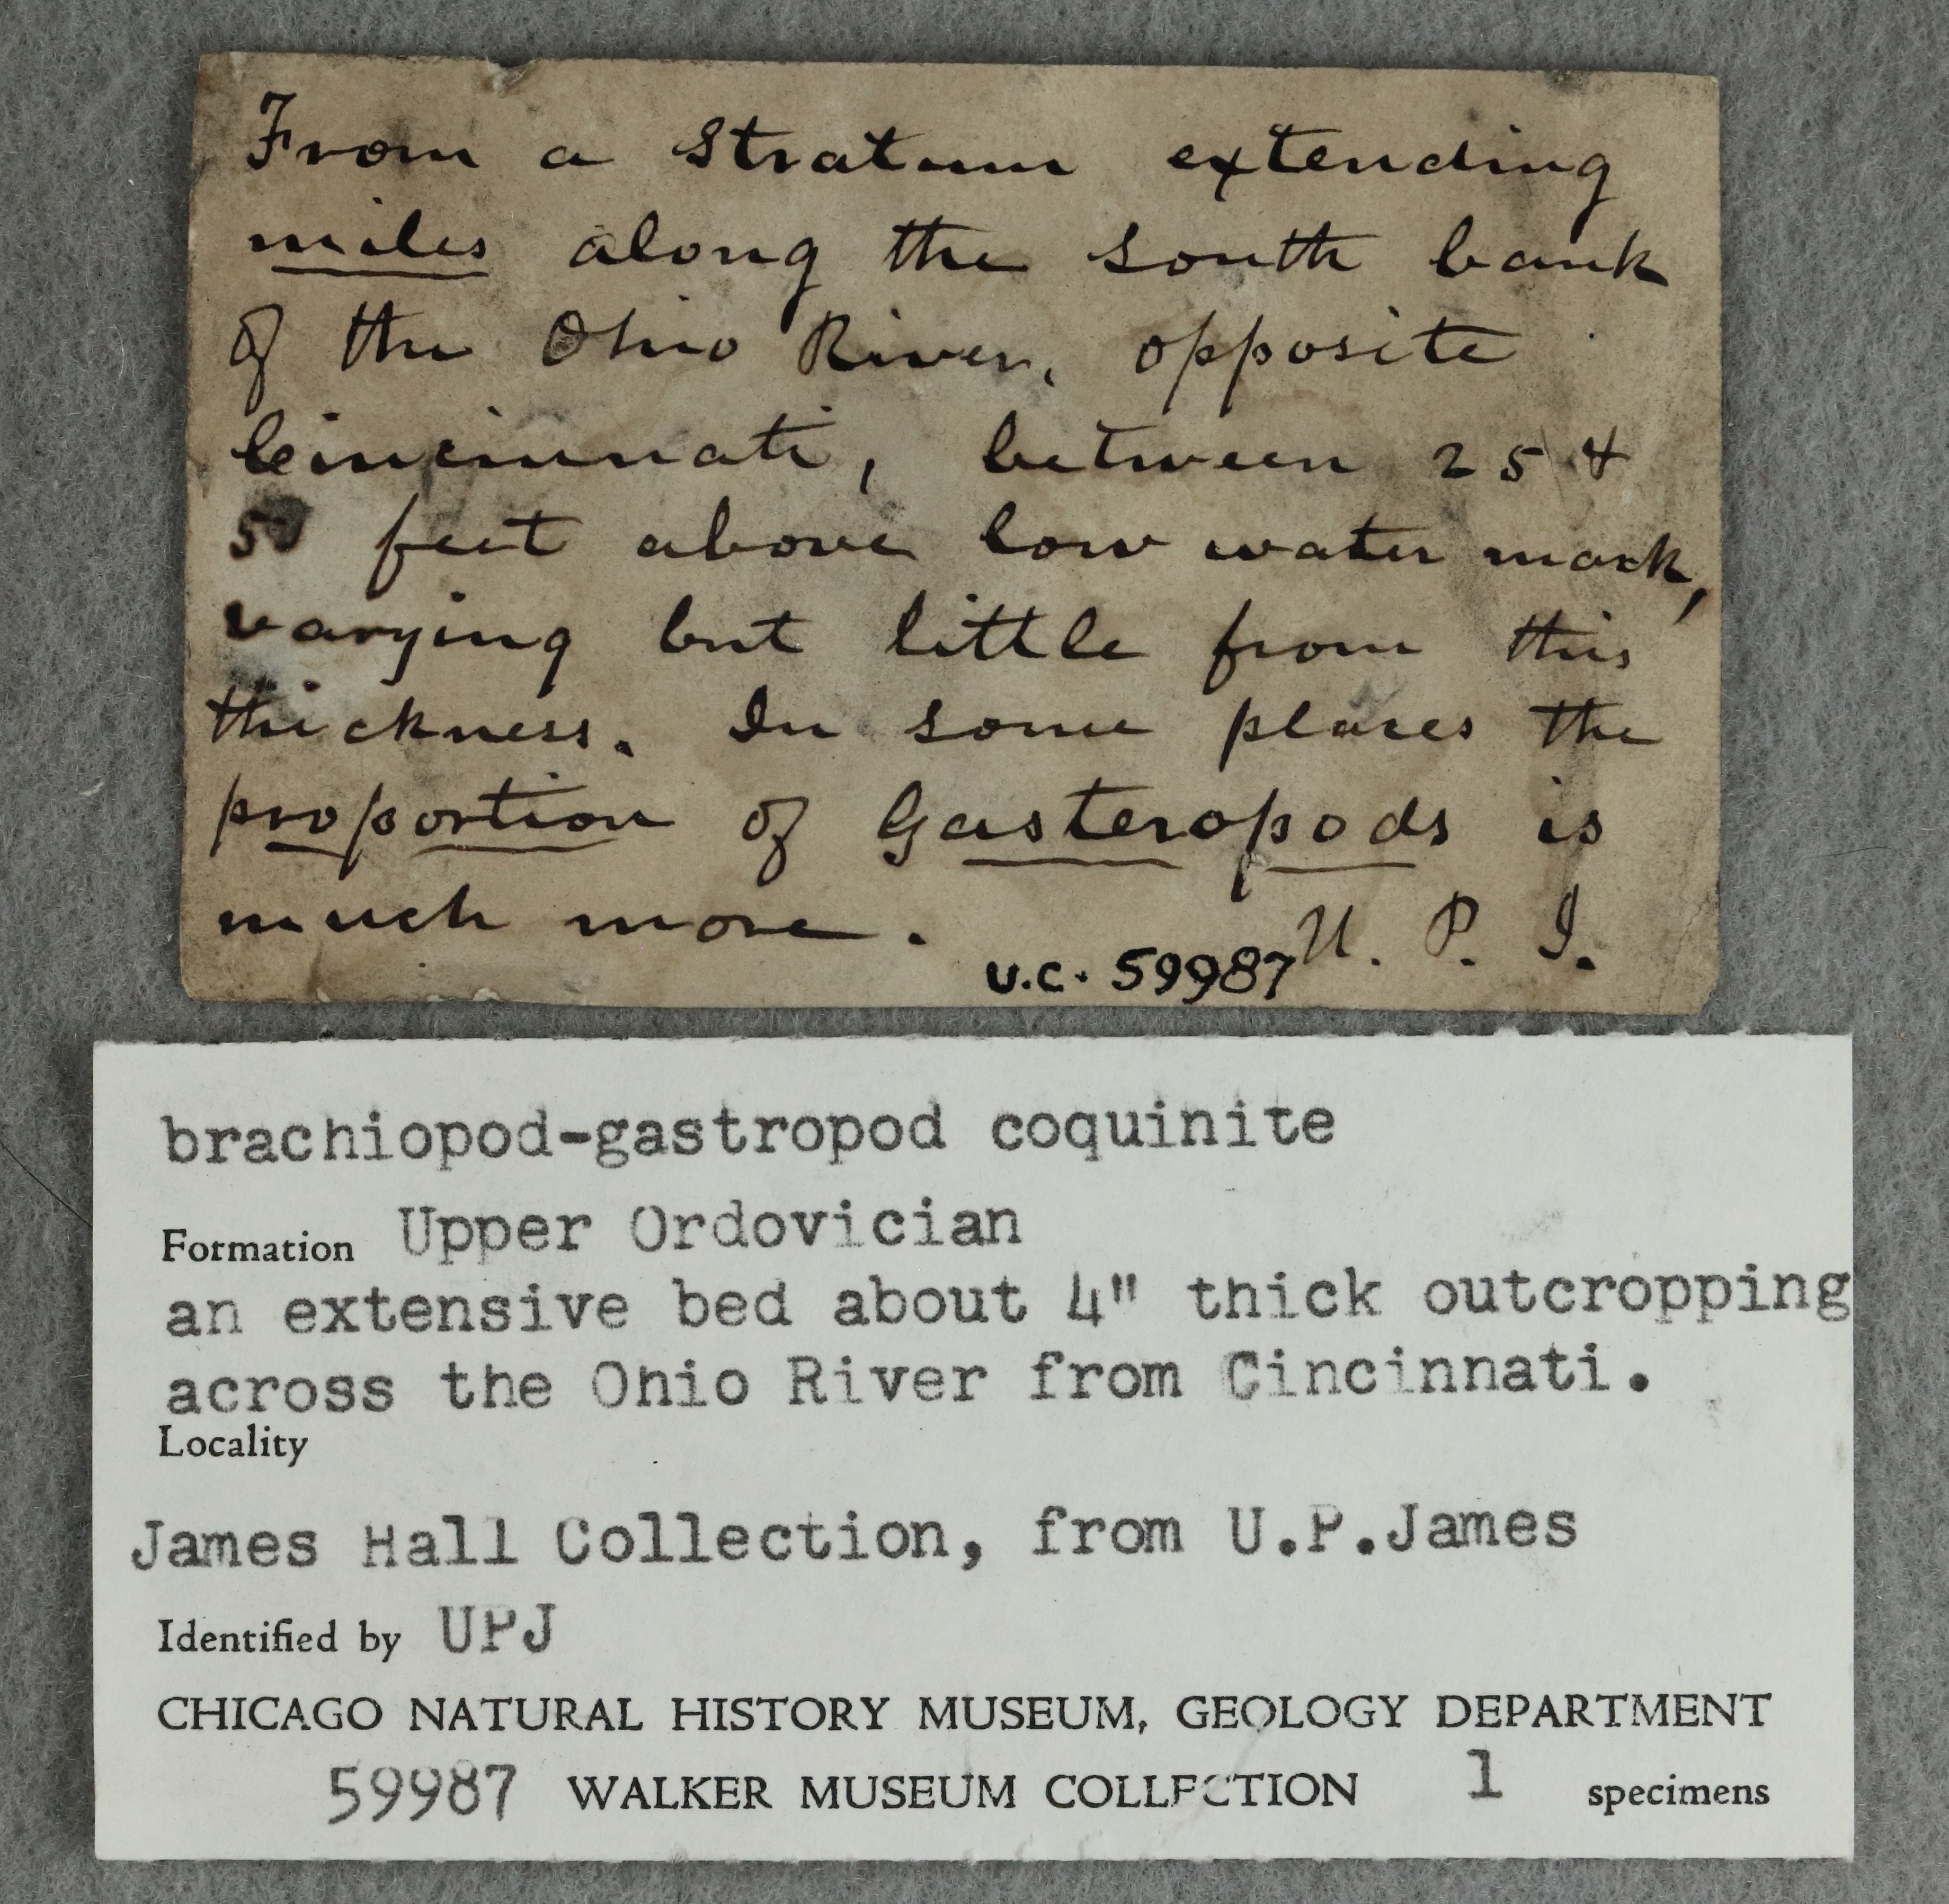 From a Stratum extending
miles along the south bank
of the Ohio River, opposite
Cincinnati, between 25 &
50 feet above low water mark,
varying but little from this
thickness. In some places the
proportion of Gasteropods is
much more. U. P. J.
U.C. 59987
brachiopod-gastropod coquinite
Formation Upper Ordovician
an extensive bed about 4" thick outcropping
across the Ohio River from Cincinnati.
Locality
James Hall Collection, from U.P.James
Identified by UPJ
CHICAGO NATURAL HISTORY MUSEUM, GEOLOGY DEPARTMENT
59987 WALKER MUSEUM COLLECTION 1 specimens